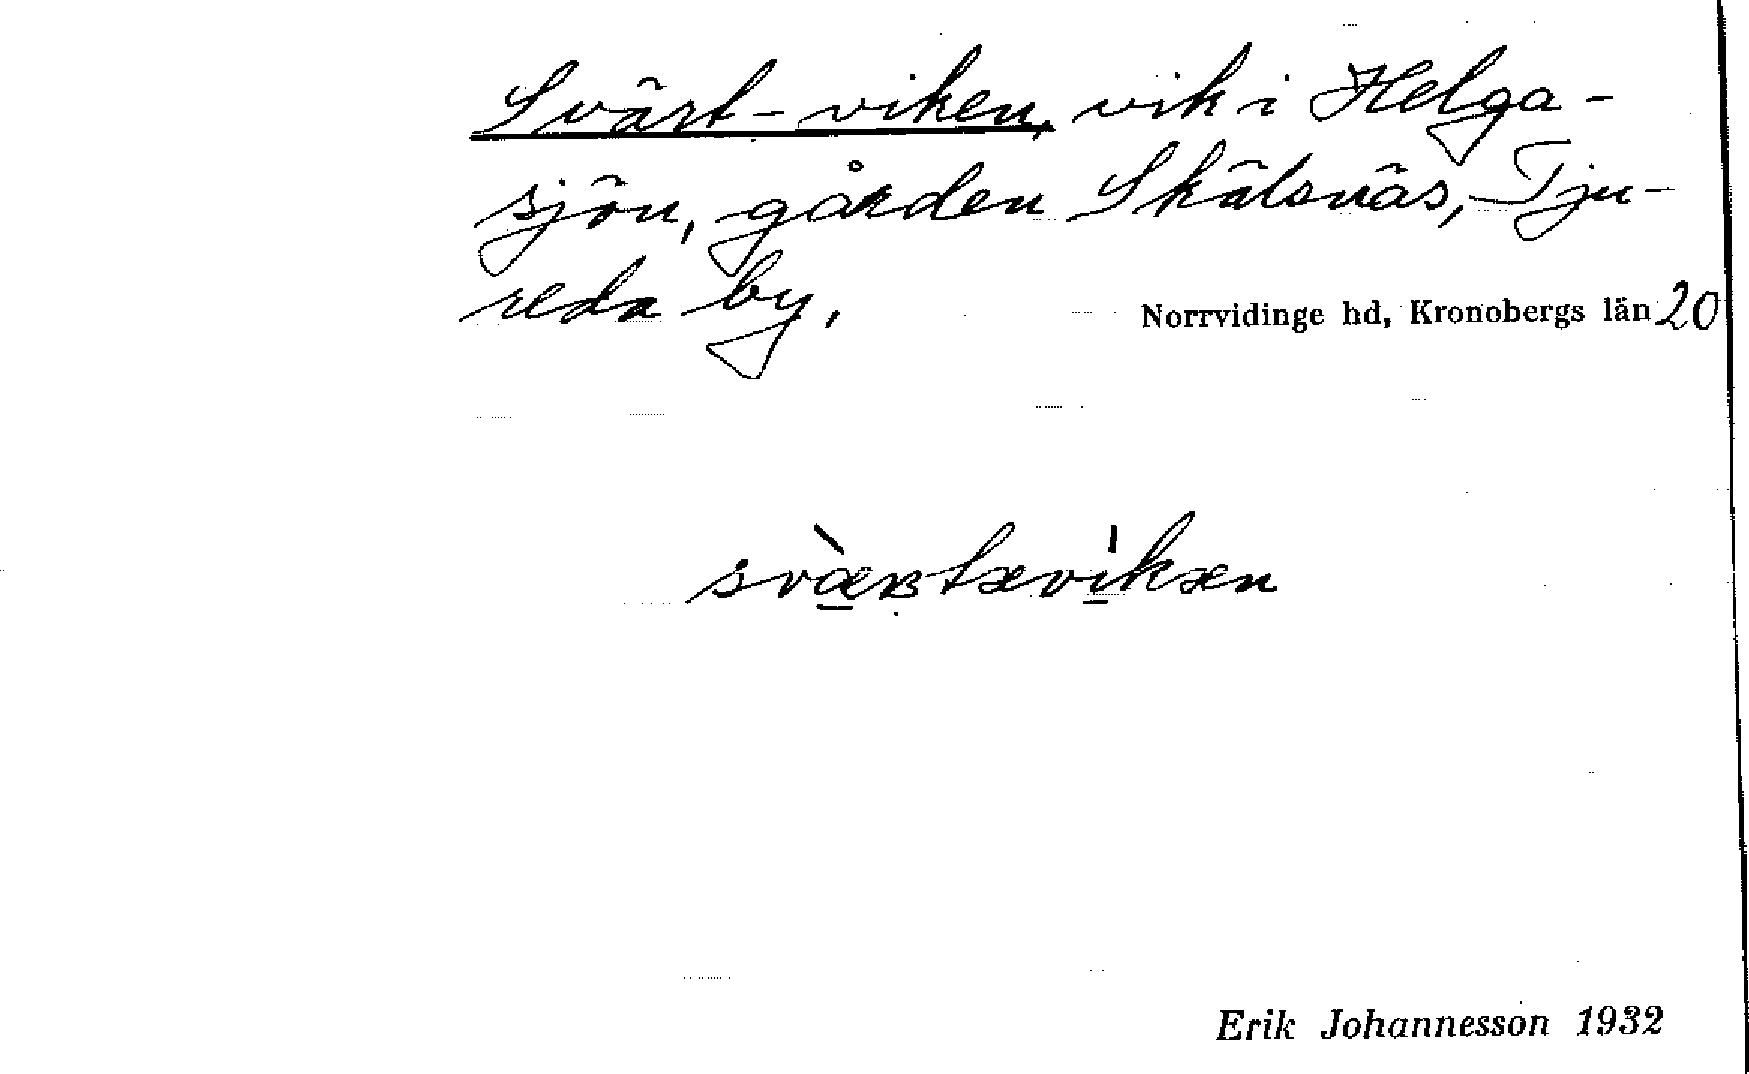 Svärt-viken, vik i Helga-
sjön, gården Skälsnäs, Tju-
reda by,
Norrvidinge hd, Kronobergs län 20
svæʀtəvikən
Erik Johannesson 1932